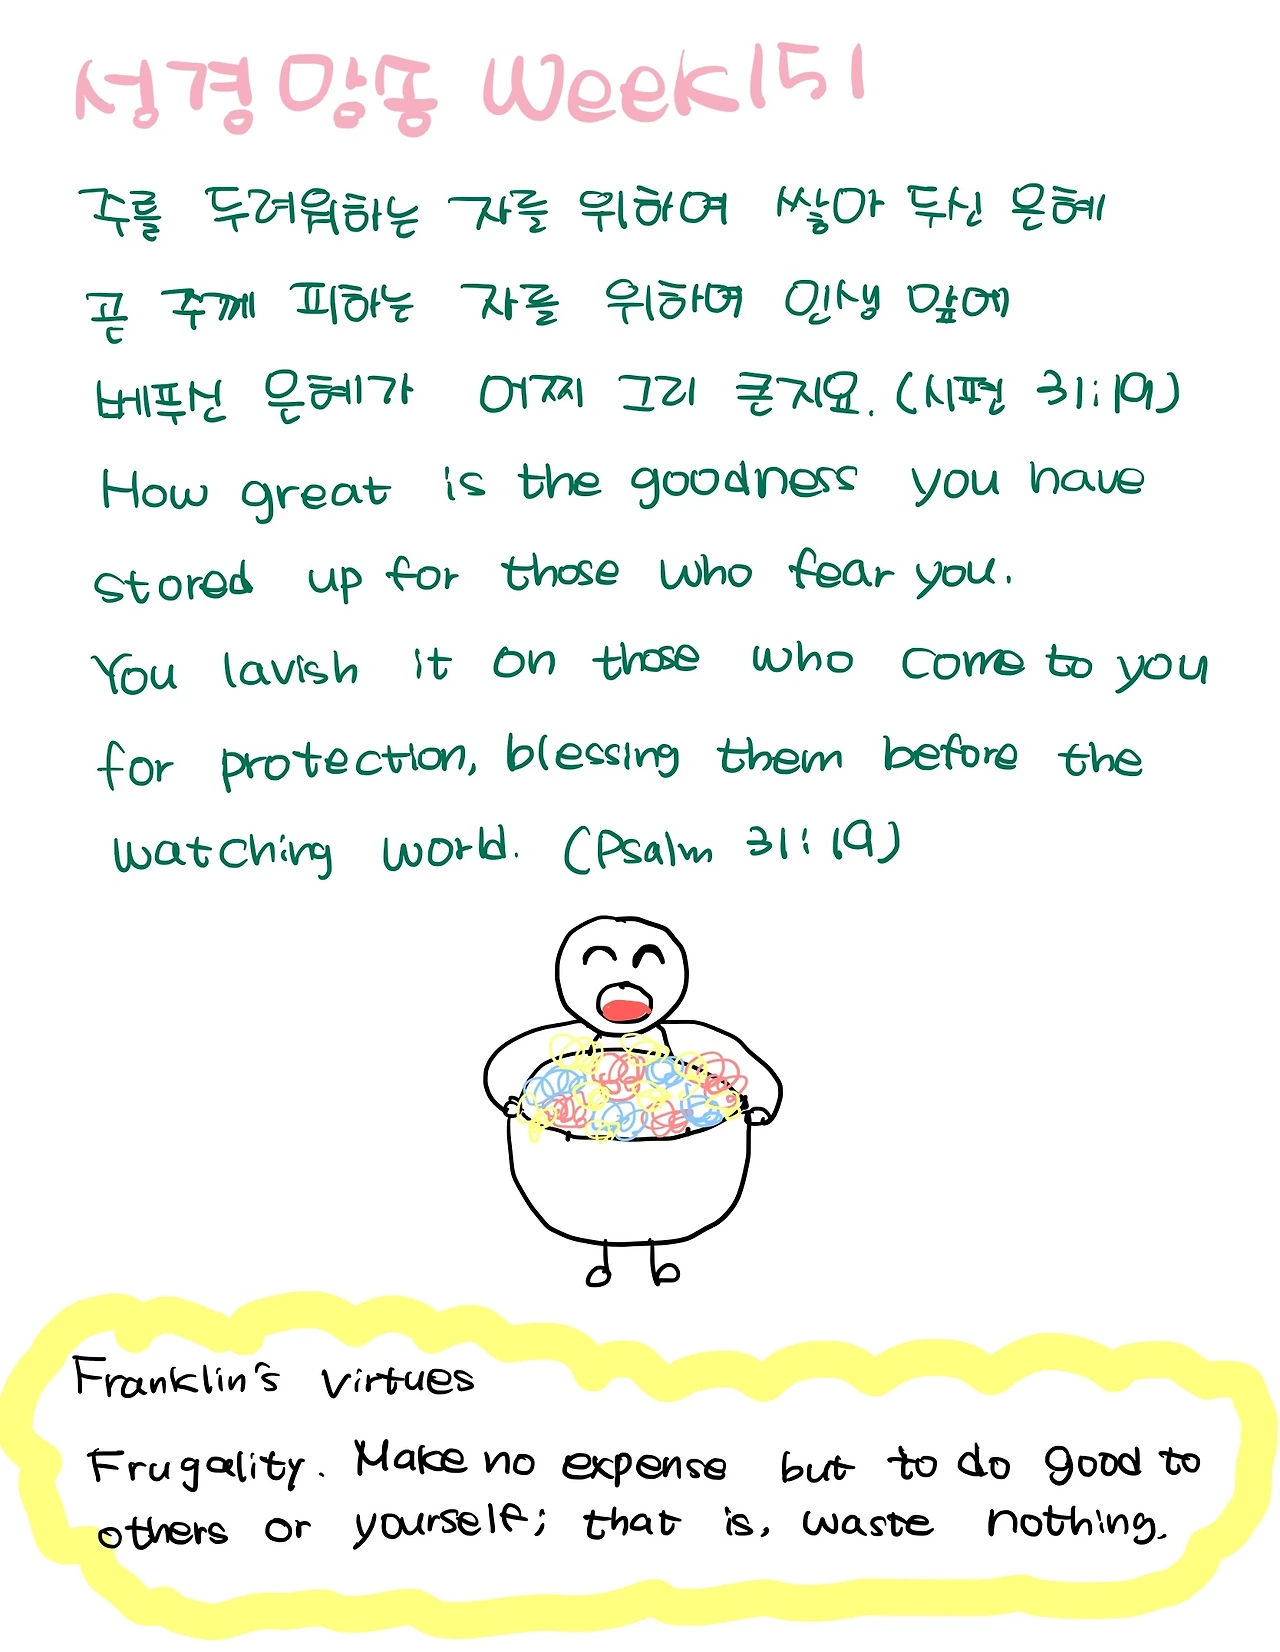 성경암송 Week151
주를 두려워하는 자를 위하여 쌓아 두신 은혜
곧 주께 피하는 자를 위하여 인생 앞에
베푸신 은혜가 어찌 그리 큰지요. (시편 31:19)
How great is the goodness you have
stored up for those who fear you.
You lavish it on those who come to you
for protection, blessing them before the
watching world. (Psalm 31:19)
Franklin's virtues
Frugality. Make no expense but to do good to
others or yourself; that is, waste nothing.